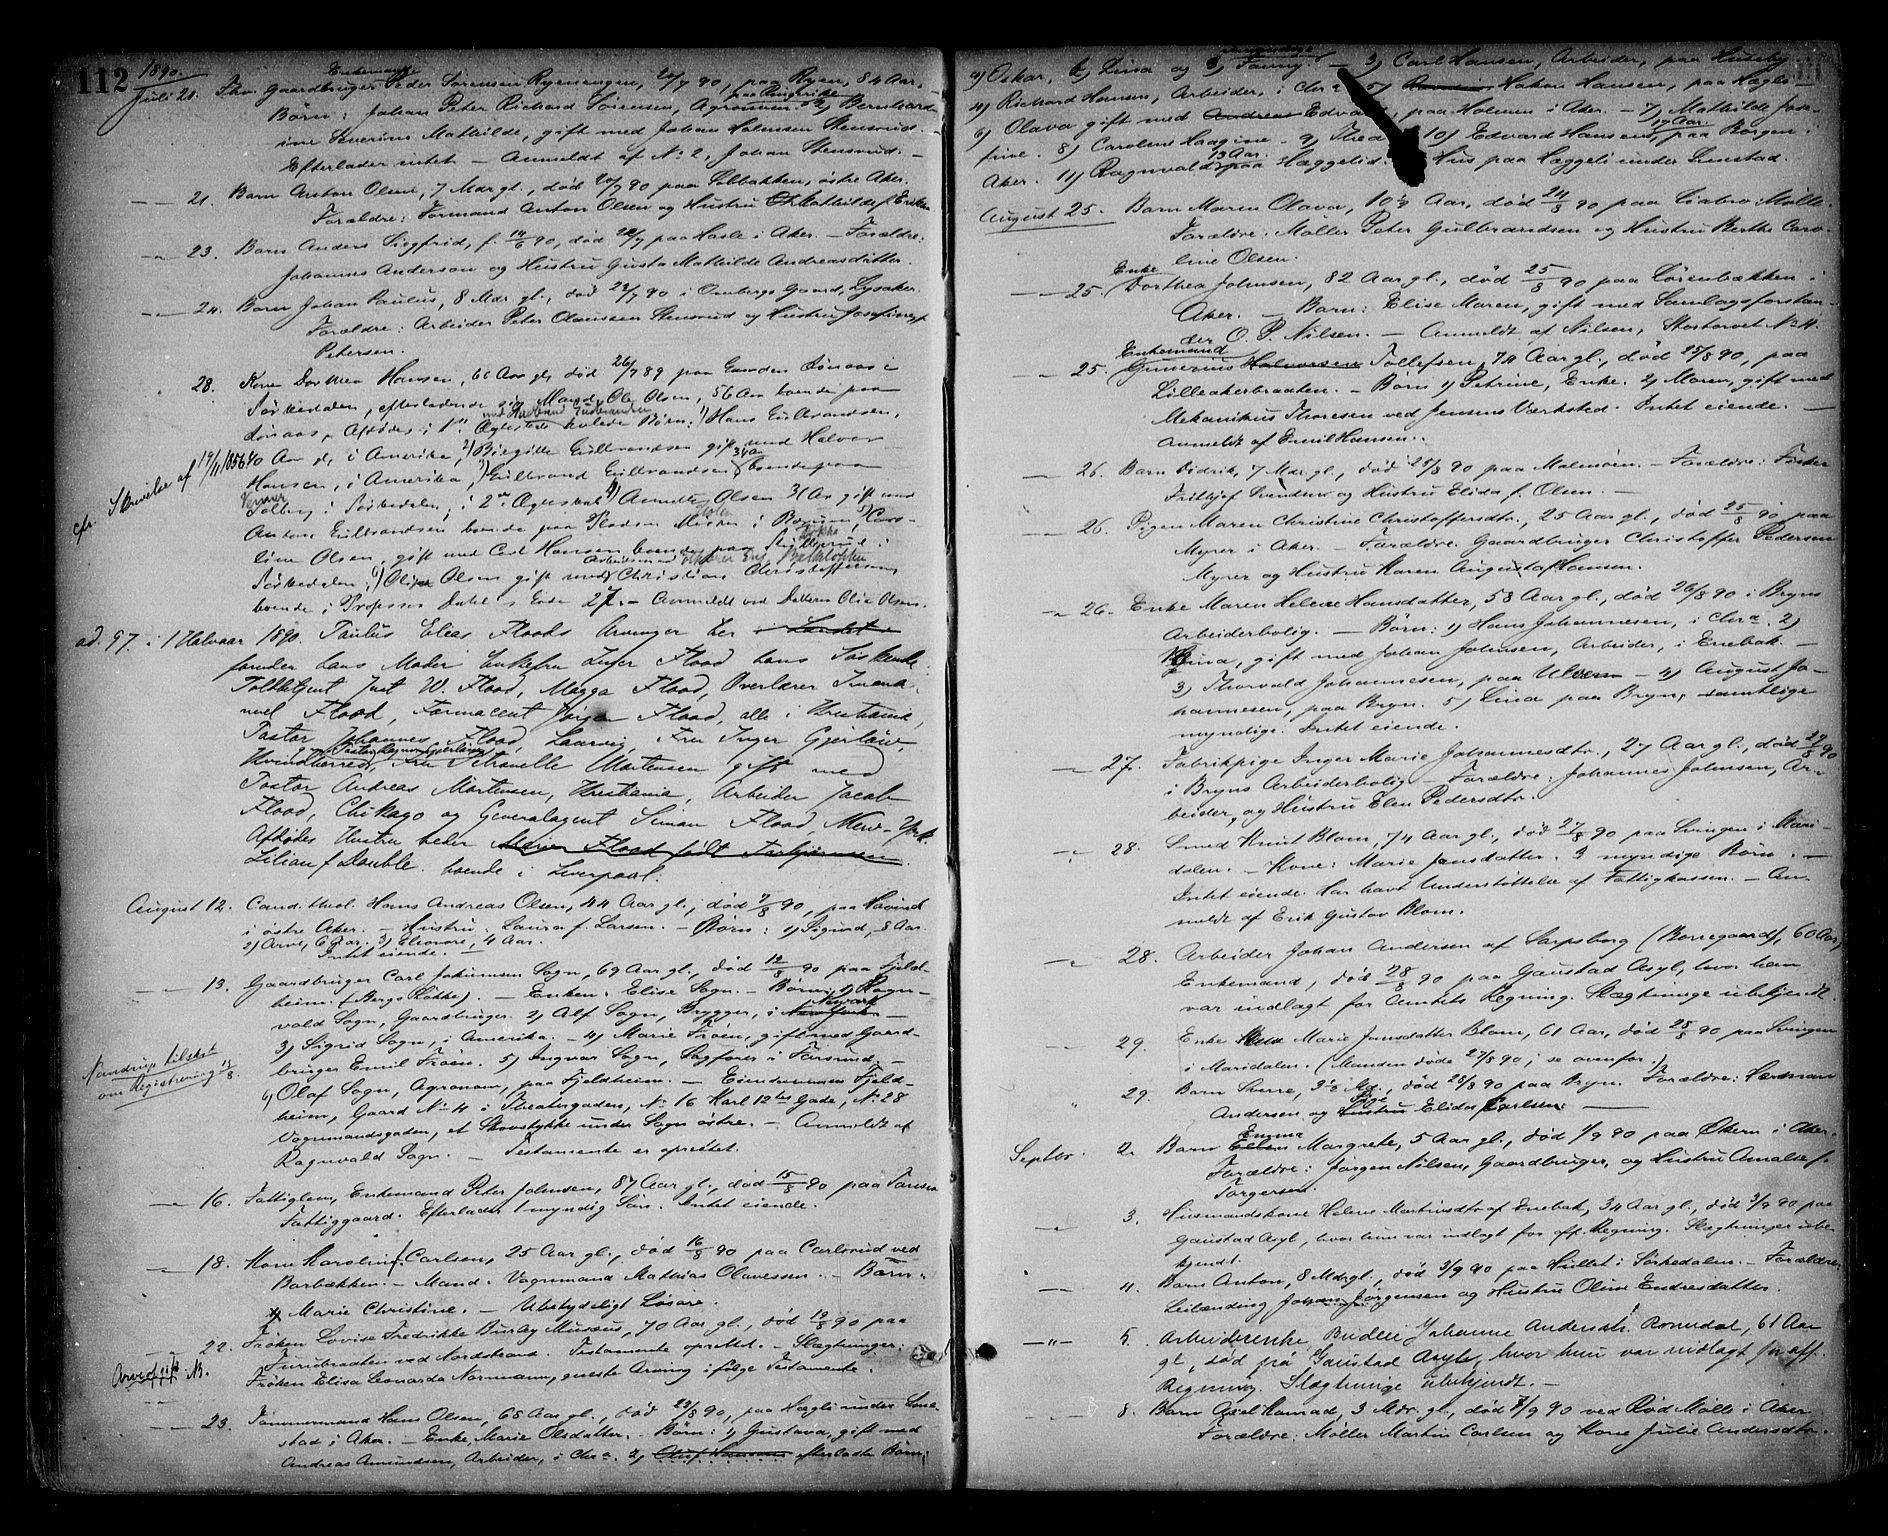 112
1890.
Enkemand
Juli 21. Fhv. Gaardbruger Peder Sörensen Ryeneengen, 20/7 90, paa Ryen, 84 Aar,
paa Ringerike
Børn: Johan Peter Richard Sörensen, Agronom 2) Bernhard
ine Severine Mathilde, gift med Johan Holmsen Stensrud.
Efterlader intet. — Anmeldt af No 2, Johan Stensrud. —
— 21. Barn Anton Olsen, 7 Mdr gl., død 20/7 90 paa Solbakken, østre Aker.
Forældre: Formand Anton Olsen og Hustru Mathilde f. Eriksen
— 23. Barn Anders Sigfrid, f. 14/6 90, død 22/7 paa Hasle i Aker. — Forældre:
Johannes Anderson og Hustru Gusta Mathilde Andreasdatter.
— 24. Barn Johan Paulus, 8 Mdr gl., død 23/7 90 i Ombergs Gaard, Lysaker.
Forældre: Arbeider Peter Olaussen Stensrud og Hustru Josefine f.
Petersen.
28. Kone Dorthea Hansen, 66 Aar gl, død 26/7 89 paa Gaarden Lönaas i
Sørkedalen, efterladende sig Mand Ole Olsen, 56 Aar boende paa
med Husbond Gulbrandsen
Lönaas, Afdødes i 1ste Ægteskab avlede Børn: 1) Hans Gulbrandsen,
cfr. Skrivelse af 17/11 1856
40 Aar gl, i Amerika, 2) Birgitte Gulbrandsen gift med Halvor
Hansen, i Amerika, 3) Gulbrand Gulbrandsen 34 Aar boende paa
Solberg i Sørkedalen; i 2det Ægteskab 4) Annette Olsen 31 Aar gift med
Anton Gulbrandsen boende paa Pladsen i Bærum, 5) Caro-
line Olsen, gift med Carl Hansen boende paa Skytterud i
Sørkedalen, 6) Oline Olsen gift med Christian Christoffersen
boende i Professor Dahls Ende 27. — Anmeldt ved Datteren Olia Olsen.
ad. 97. i 1 Halvaar 1890. Paulus Elias Floods Arvinger her i Landet
foruden hans Moder Enkefru Inger Flood hans Søskende:
Toldbetjent Just W. Flood, Magga Flood, Overlærer Imma-
nuel Flood, Farmaceut Jørgen Flood, alle i Kristiania,
Pastor Johannes Flood, Laurvig, Fru Inger Gjerløw,
Kvindherred, Fru Petronelle Mortensen gift med
Pastor Andreas Mortensen, Kristiania, Arbeider Jacob
Flood, Chikago og Generalagent Simon Flood, New-York.
Afdødes Hustru heder Maria Flood født Torbjørnsen.
Lilian f Double. boende i Liverpool.
August 12. Cand. theol. Hans Andreas Olsen, 44 Aar gl., død 7/8 90, paa Hovind
i østre Aker. — Hustru: Laura f. Larsen. — Børn: 1) Sigurd, 8 Aar.
2) Arne, 6 Aar. 3) Eleonore, 4 Aar.
Intet eiende. —
— 13. Gaardbruger Carl Johannsen Sogn, 69 Aar gl., død 12/8 90 paa Fjeld-
heim (Bergs Løkke). — Enken: Elise Sogn. — Børn: 1) Ragn-
vald Sogn, Gaardbruger. 2) Alf Sogn, Brygger, i New York
Newark
3) Sigrid Sogn, i Amerika. — 4) Marie Frøen, gift med Gaard-
bruger Emil Frøen. 5) Ingvar Sogn, Sagfører i Farsund. —
Nandrup tilskrevet
om Registrering 13/8.
6) Olaf Sogn, Agronom, paa Fjeldheim. — Eiendommene Fjeld-
heim, Gaard No 4 i Theatergaden, No 16 Karl 12tes Gade, No 28
Vognmandsgaden, et Skovstykke under Sogn østre. — Anmeldt af
Ragnvald Sogn. — Testamente er oprettet.
— 16. Fattiglem, Enkemand Peter Johnsen, 87 Aar gl., død 15/8 90 paa
Fattiggaard. Efterlader 1 myndig Søn. Intet eiende.
— 18. Kone Karoline f. Carlsen, 25 Aar gl., død 16/8 90 paa Carlsrud ved
Barbækken. — Mand: Vognmand Mathias Olavessen. — Børn:
Marie Christine. — Ubetydeligt Løsøre.
22. Frøken Lovise Fredrikke Burley Museus, 70 Aar gl., død 19/8 90 paa
Furubraaten ved Nordstrand. Testamente oprettet. — Slægtninger:
Frøken Elisa Leonarda Normann, eneste Arving ifølge Testamente.
— 23. Tømmermand Hans Olsen, 68 Aar gl., død 23/8 90, paa Hægli under Line-
stad i Aker. — Enke, Marie Olsdatter. — Børn: 1) Gustava, gift med
Andreas Amundsen, Arbeider, i Chra. 2) Oluf Hansens efterladte Børn:
myndige
a) Oskar, b) Lina og c) Fanny. — 3) Carl Hansen, Arbeider, paa Huseby.
4) Richard Hansen, Arbeider, i Chra 5) Hakon Hansen, paa Hægli
6) Olava gift med Andreas Edvard, paa Holmen i Aker. — 7) Mathilde Jose-
17 Aar.
fine. 8) Caroline Haagine. 9) Thea 10) Edvard Hansen, paa Borgen i
13 Aar.
Aker. 11) Ragnvald paa Hæggelid. Hus paa Hæggeli under Linestad.
August 25. Barn Maren Olava, 10½ Aar, død 24/8 90 paa Liabro Mølle.
Forældre: Møller Peter Gulbrandsen og Hustru Berthe Caro-
line Olsen.
Enke
— 25. Dorthea Johnsen, 82 Aar gl., død 25/8 90 paa Lørenbækken i
Aker. — Barn: Elise Maren, gift med Samlagsforstan-
der O. P. Nilsen. — Anmeldt af Nilsen, Stortorvet No 4.
Enkemand
— 25. Gunerius Halvorsen Tollefsen, 74 Aar gl., død 25/8 90, paa
Lilleakerbraaten. — Børn 1) Petrine, Enke. 2) Maren, gift med
Mekanikus Thoresen ved Jensens Værksted. Intet eiende. —
Anmeldt af Emil Hansen.
— 26. Barn Didrik, 7 Mdr. gl., død 25/8 90 paa Malmøen. — Forældre: Fisker
Fritjof Svendsen og Hustru Elida f. Olsen. —
— 26. Pigen Maren Christine Christoffersdtr., 25 Aar gl., død 25/8 90 paa
Myrer i Aker. — Forældre: Gaardbruger Christoffer Pedersen
Myrer og Hustru Karen Augusta f. Hansen.
— 26. Enke Maren Helene Hansdatter, 58 Aar gl., død 26/8 90 i Bryns
Arbeiderbolig. — Børn: 1) Hans Johannesen, i Chra. 2)
Lina, gift med Johan Johnsen, Arbeider, i Enebak. —
3) Thorvald Johannesen, paa Ulven — 4) August Jo-
hannesen, paa Bryn. 5) Lina paa Bryn, samtlige
myndige. Intet eiende.
— 27. Fabrikpige Inger Marie Johannesdtr., 27 Aar gl., død 27/8 90
i Bryns Arbeiderbolig — Forældre: Johannes Johnsen, Ar-
beider, og Hustru Elen Pedersdtr.
— 28. Smed Knut Blom, 74 Aar gl., død 27/8 90 paa Svingen i Mari-
dalen. — Kone: Marie Jansdatter. 3 myndige Børn. —
Intet eiende. Har havt Understøttelse af Fattigkassen. — An-
meldt af Erik Gustav Blom.
— 28. Arbeider Johan Andersen af Sarpsborg (Borregaard), 60 Aar,
Enkemand, død 28/8 90 paa Gaustad Asyl, hvor han
var indlagt for Amtets Regning. Slægtninge ubekjendt.
29. Enke Marie Jansdatter Blom, 61 Aar, død 28/8 90 paa Svingen
i Maridalen. (Manden døde 27/8 90, se ovenfor.)
29. Barn Sverre, 3½ Md., død 28/8 90 paa Bryn. Forældre: Herman
Andersen og Hustru Elida Carlsen. —
Pige
Septbr. 2. Barn Ellen Margrete, 5 Aar gl., død 1/9 90 paa Økern i Aker.
Emma
Forældre: Jørgen Nilsen, Gaardbruger, og Hustru Amalie f.
Torgersen.
3. Husmandskone Helene Martinsdtr af Enebak, 34 Aar gl., død 3/9 90 paa
Gaustad Asyl, hvor hun var indlagt for off. Regning. Slægtninger ube-
kjendt.
— 4. Barn Anton, 8 Mdr gl., død 3/9 90 paa Hullet i Sørkedalen. — Forældre:
Leilænding Johan Jørgensen og Hustru Oline Endresdatter.
— 5. Arbeiderenke Birthe Johanne Andersdtr. Romdal, 61 Aar
gl, død på Gaustad Asyl, hvor hun var indlagt for off.
Regning. Slægtninge ubekjendt. —
— 8. Barn Axel Konrad, 3 Mdr. gl., død 7/9 90 ved Rød Mølle i Aker
Forældre: Møller Martin Carlsen og Kone Julie Andersdtr.